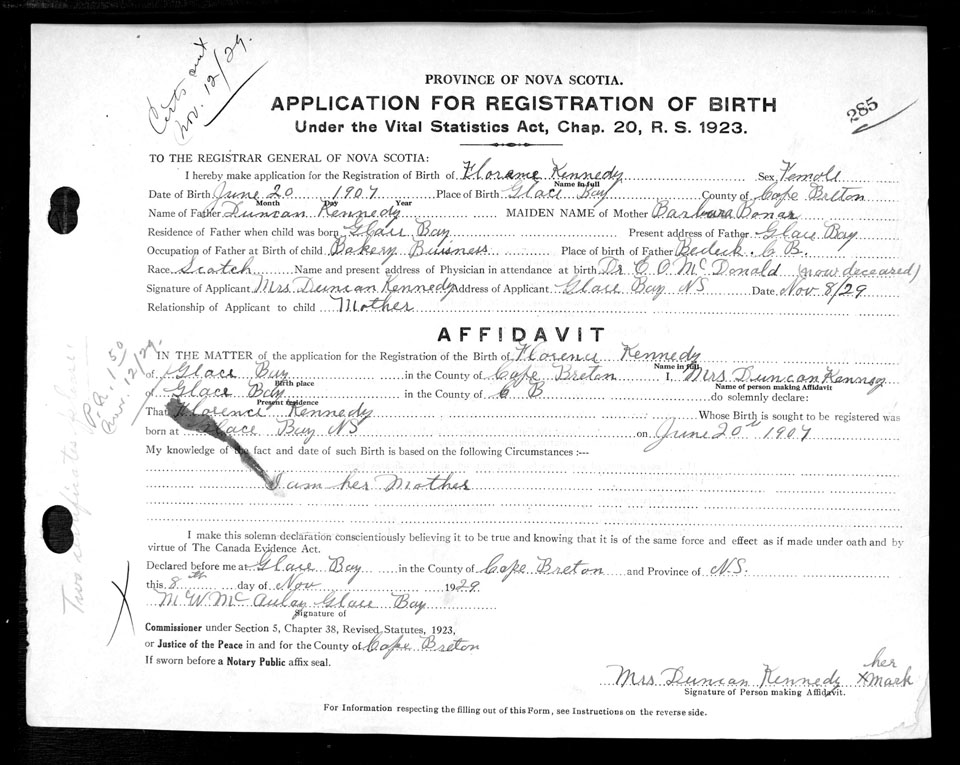 Certs sent
Nov. 12/29.
285
PROVINCE OF NOVA SCOTIA.
APPLICATION FOR REGISTRATION OF BIRTH
Under the Vital Statistics Act, Chap. 20, R. S. 1923.
TO THE REGISTRAR GENERAL OF NOVA SCOTIA:
I hereby make application for the Registration of Birth of Florence Kennedy Sex Female
Name in full
Date of Birth June 20 1907 Place of Birth Glace Bay County of Cape Breton
Month Day Year
Name of Father Duncan Kennedy MAIDEN NAME of Mother Barbara Bonar
Residence of Father when child was born Glace Bay Present address of Father Glace Bay
Occupation of Father at Birth of child Bakery Business Place of birth of Father Bedeck. C B.
Race Scotch Name and present address of Physician in attendance at birth Dr. E. O. Mc Donald (now deceased)
Signature of Applicant Mrs Duncan Kennedy Address of Applicant Glace Bay NS Date Nov 8/29
Relationship of Applicant to child Mother
AFFIDAVIT
IN THE MATTER of the application for the Registration of the Birth of Florence Kennedy
Name in full
of Glace Bay in the County of Cape Breton I, Mrs Duncan Kennedy
Birth place Name of person making Affidavit
of Glace Bay in the County of C B do solemnly declare:
Present residence
That Florence Kennedy Whose Birth is sought to be registered was
born at Glace Bay NS on June 20th 1907
My knowledge of the fact and date of such Birth is based on the following Circumstances :--
I am her Mother
I make this solemn declaration conscientiously believing it to be true and knowing that it is of the same force and effect as if made under oath and by
virtue of The Canada Evidence Act.
Declared before me at Glace Bay in the County of Cape Breton and Province of NS.
this 8th day of Nov 1929
M W Mc Aulay Glace Bay
Signature of
Commissioner under Section 5, Chapter 38, Revised Statutes, 1923,
or Justice of the Peace in and for the County of Cape Breton
If sworn before a Notary Public affix seal.
Mrs Duncan Kennedy her
X mark
Signature of Person making Affidavit.
For Information respecting the filling out of this Form, see Instructions on the reverse side.
1 50
12/29.
Two certificates
X